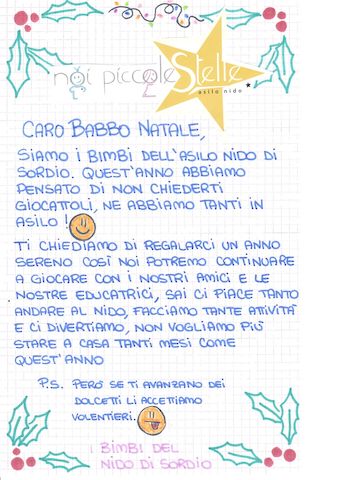 noi piccole Stelle
asilo nido
CARO BABBO NATALE,
SIAMO I BIMBI DELL'ASILO NIDO DI
SORDIO. QUEST'ANNO ABBIAMO
PENSATO DI NON CHIEDERTI
GIOCATTOLI, NE ABBIAMO TANTI IN
ASILO!
TI CHIEDIAMO DI REGALARCI UN ANNO
SERENO COSÌ NOI POTREMO CONTINUARE
A GIOCARE CON I NOSTRI AMICI E LE
NOSTRE EDUCATRICI, SAI CI PIACE TANTO
ANDARE AL NIDO, FACCIAMO TANTE ATTIVITÀ
E CI DIVERTIAMO, NON VOGLIAMO PIÙ
STARE A CASA TANTI MESI COME
QUEST'ANNO
P.S. PERÒ SE TI AVANZANO DEI
DOLCETTI LI ACCETTIAMO
VOLENTIERI.
I BIMBI DEL
NIDO DI SORDIO